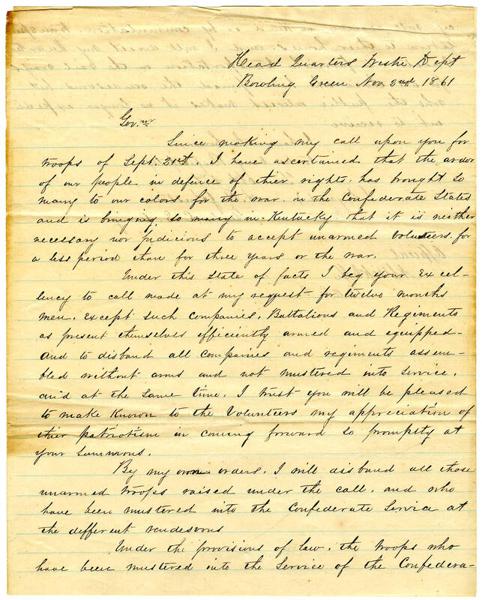 Head Quarters Westn Dept
Bowling Green Nov 2nd 1861
Govnr
Since making my call upon you for
troops of Sept. 21st. I have ascertained that the ardor
of our people in defence of thier rights. has brought so
many to our colors for the war. in the Confederate States
and is bringing so many in Kentucky that it is neither
necessary nor Judicious to accept unarmed Volunteers for
a less period than for three years or the war.
Under this State of facts I beg your Excel-
lency to call made at my request for twelve months
men. except such Companies. Battalions and Regiments
as present themselves efficiently armed and equipped-
and to disband all Companies and regiments assem-
bled without arms and not mustered into service.
and at the same time. I trust you will be pleased
to make known to the Volunteers my appreciation of
thier patriotism in coming forward so promptly at
your Summons.
By my own orders. I will disband all those
unarmed troops raised under the call. and who
have been mustered into the Confederate Service at
the different rendesvous
Under the provisions of law. the troops who
have been mustered into the Service of the Confedera-